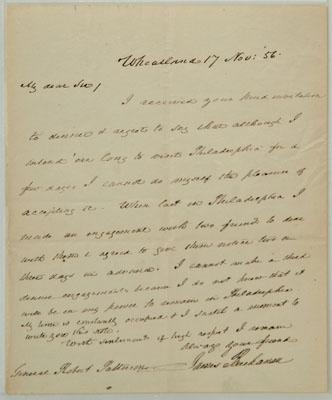 Wheatland 17 Nov: '56.
My dear Sir/
I received your kind invitation
to dinner & regret to say that although I
intend 'ere long to visit Philadelphia for a
few days I cannot do myself the pleasure of
accepting it. When last in Philadelphia I
made an engagement with two friends to dine
with them & agreed to give them notice two or
three days in advance. I cannot make a third
dinner engagement because I do not know that it
will be in my power to remain in Philadelphia
My time is constantly occupied & I snatch a moment to
write you this note.
With sentiments of high respect I remain
always your friend
James Buchanan
General Robert Patterson